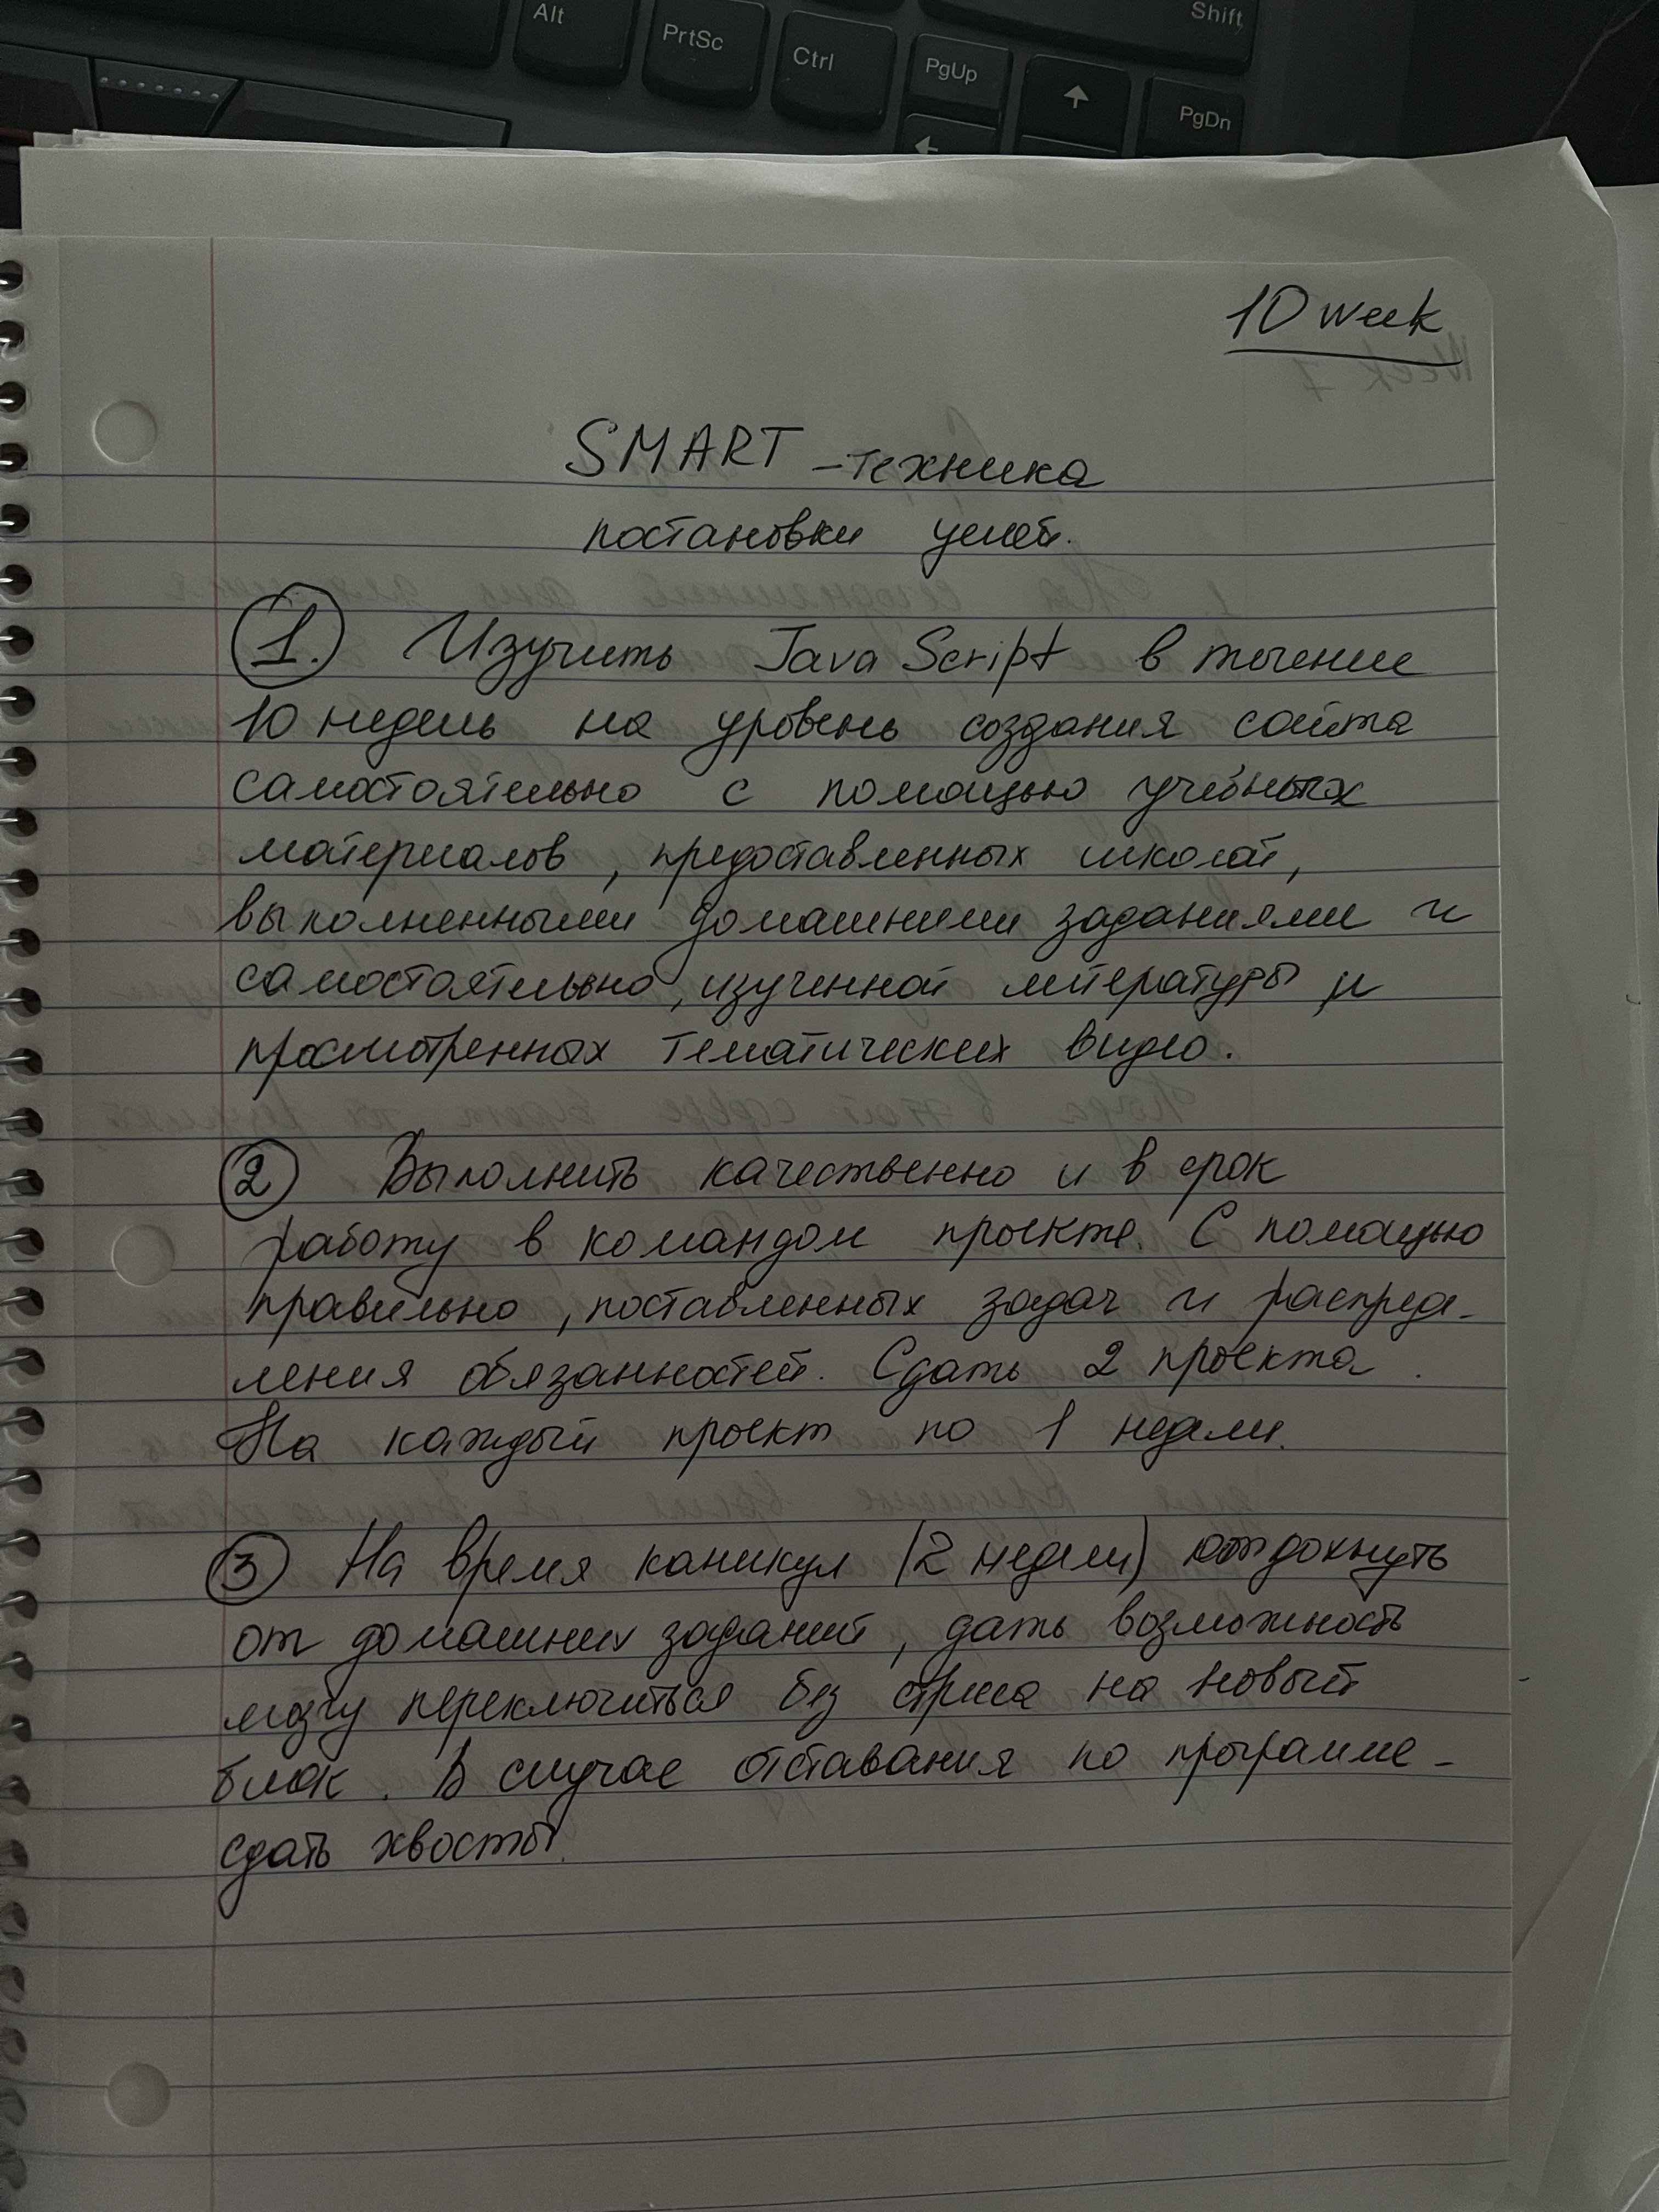 Alt
PrtSc
Ctrl
PgUp
Shift
PgDn
10 week
Week 7
SMART - техника
постановки целей.
1. Изучить Java Script в течение
10 недель на уровень создания сайта
самостоятельно с помощью учебных
материалов, предоставленных школой,
выполненными домашними заданиями и
самостоятельно, изученной литературы и
просмотренных тематических видео.
2 Выполнить качественно и в срок
работу в командом проекте. С помощью
правильно, поставленных задач и распреде-
ления обязанностей. Сдать 2 проекта.
На каждый проект по 1 недели.
3 На время каникул (2 недели) отдохнуть
от домашних заданий, дать возможность
мозгу переключиться без стресса на новый
блок. В случае отставания по программе -
сдать хвосты.